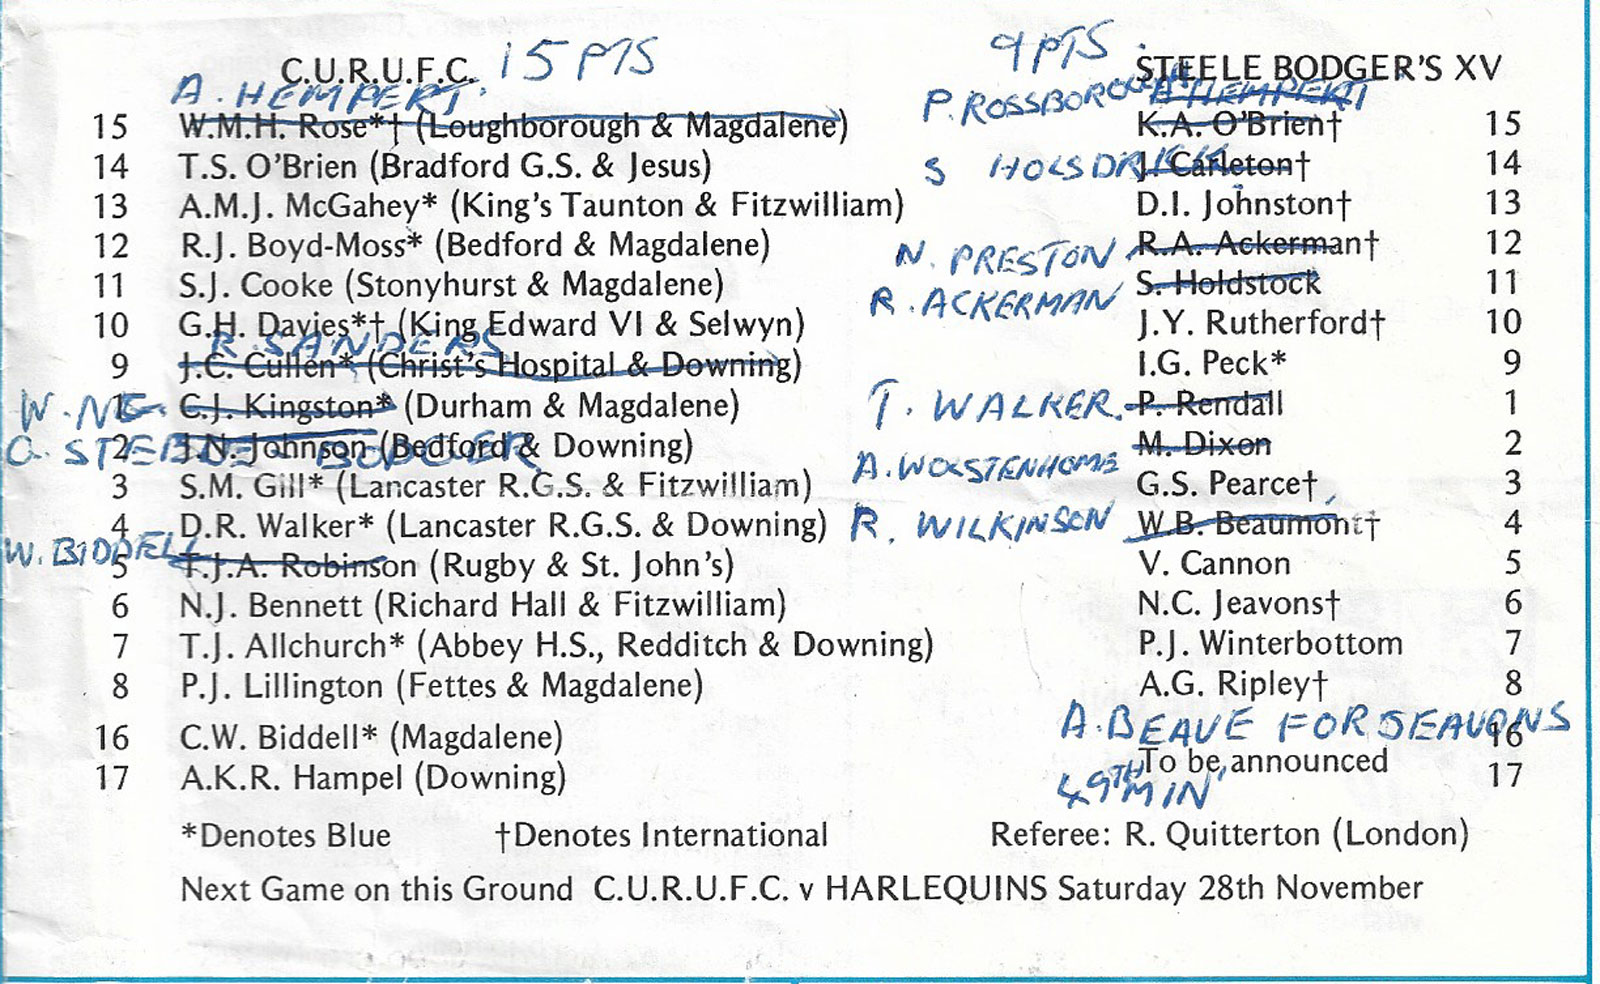 C.U.R.U.F.C. 15 PTS
A. HEMPERT.
15 W.M.H. Rose*† (Loughborough & Magdalene)
14 T.S. O'Brien (Bradford G.S. & Jesus)
13 A.M.J. McGahey* (King's Taunton & Fitzwilliam)
12 R.J. Boyd-Moss* (Bedford & Magdalene)
11 S.J. Cooke (Stonyhurst & Magdalene)
10 G.H. Davies*† (King Edward VI & Selwyn)
R. SANDERS
9 J.C. Cullen* (Christ's Hospital & Downing)
1 C.J. Kingston* (Durham & Magdalene)
2 J.N. Johnson (Bedford & Downing)
3 S.M. Gill* (Lancaster R.G.S. & Fitzwilliam)
4 D.R. Walker* (Lancaster R.G.S. & Downing)
W. BIDDELL
5 T.J.A. Robinson (Rugby & St. John's)
6 N.J. Bennett (Richard Hall & Fitzwilliam)
7 T.J. Allchurch* (Abbey H.S., Redditch & Downing)
8 P.J. Lillington (Fettes & Magdalene)
16 C.W. Biddell* (Magdalene)
17 A.K.R. Hampel (Downing)
*Denotes Blue †Denotes International
9 PTS.
STEELE BODGER'S XV
P. ROSSBOROUGH A HEMPERT
K.A. O'Brien† 15
S J. Carleton† 14
D.I. Johnston† 13
N. PRESTON R.A. Ackerman† 12
R. ACKERMAN S. Holdstock 11
J.Y. Rutherford† 10
I.G. Peck* 9
T. WALKER. P. Rendall 1
M. Dixon 2
A. WOLSTENHOME G.S. Pearce† 3
R. WILKINSON W.B. Beaumont† 4
V. Cannon 5
N.C. Jeavons† 6
P.J. Winterbottom 7
A.G. Ripley† 8
A. BEAVE FOR JEAVONS
16
To be announced
17
49TH MIN
Referee: R. Quitterton (London)
Next Game on this Ground C.U.R.U.F.C. v HARLEQUINS Saturday 28th November